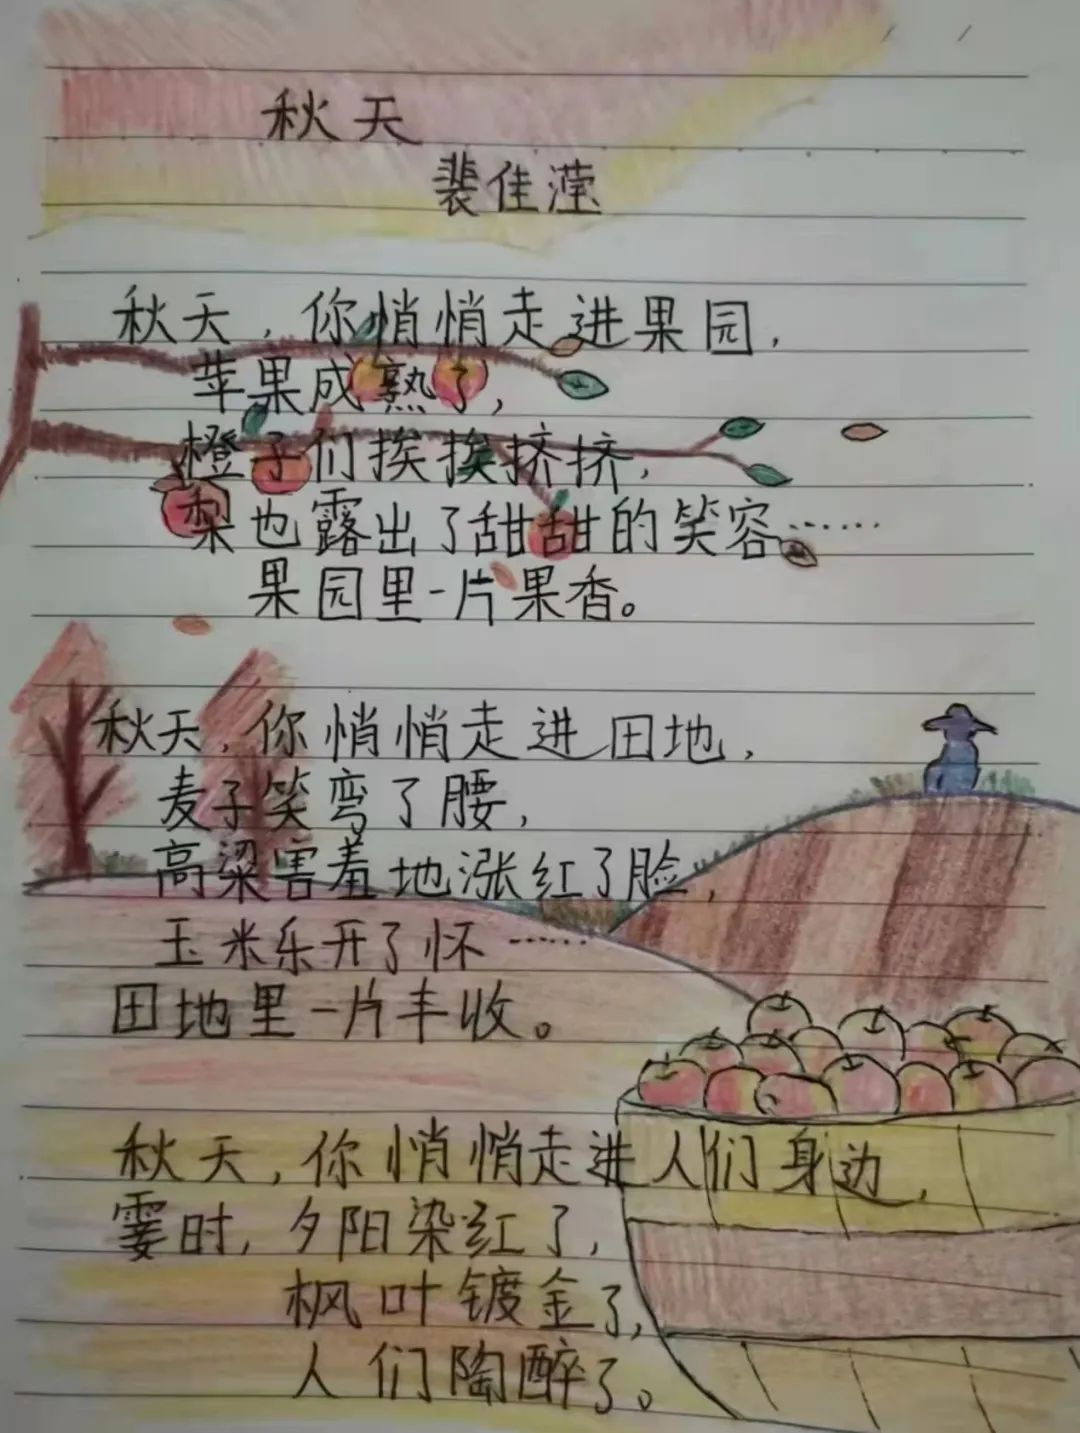 秋天
裴佳滢
秋天，你悄悄走进果园，
苹果成熟了，
橙子们挨挨挤挤，
梨也露出了甜甜的笑容……
果园里一片果香。
秋天，你悄悄走进田地，
麦子笑弯了腰，
高粱害羞地涨红了脸，
玉米乐开了怀……
田地里一片丰收。
秋天，你悄悄走进人们身边，
霎时，夕阳染红了，
枫叶镀金了，
人们陶醉了。